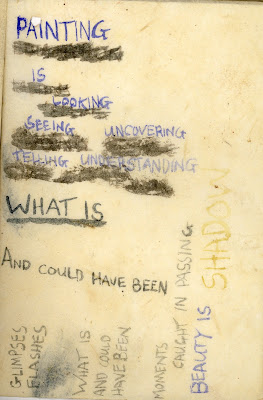 PAINTING
IS
LOOKING
SEEING UNCOVERING
TELLING UNDERSTANDING
WHAT IS
AND COULD HAVE BEEN
GLIMPSES
FLASHES
WHAT IS
AND COULD
HAVE BEEN
MOMENTS
CAUGHT IN PASSING
BEAUTY IS
SHADOW